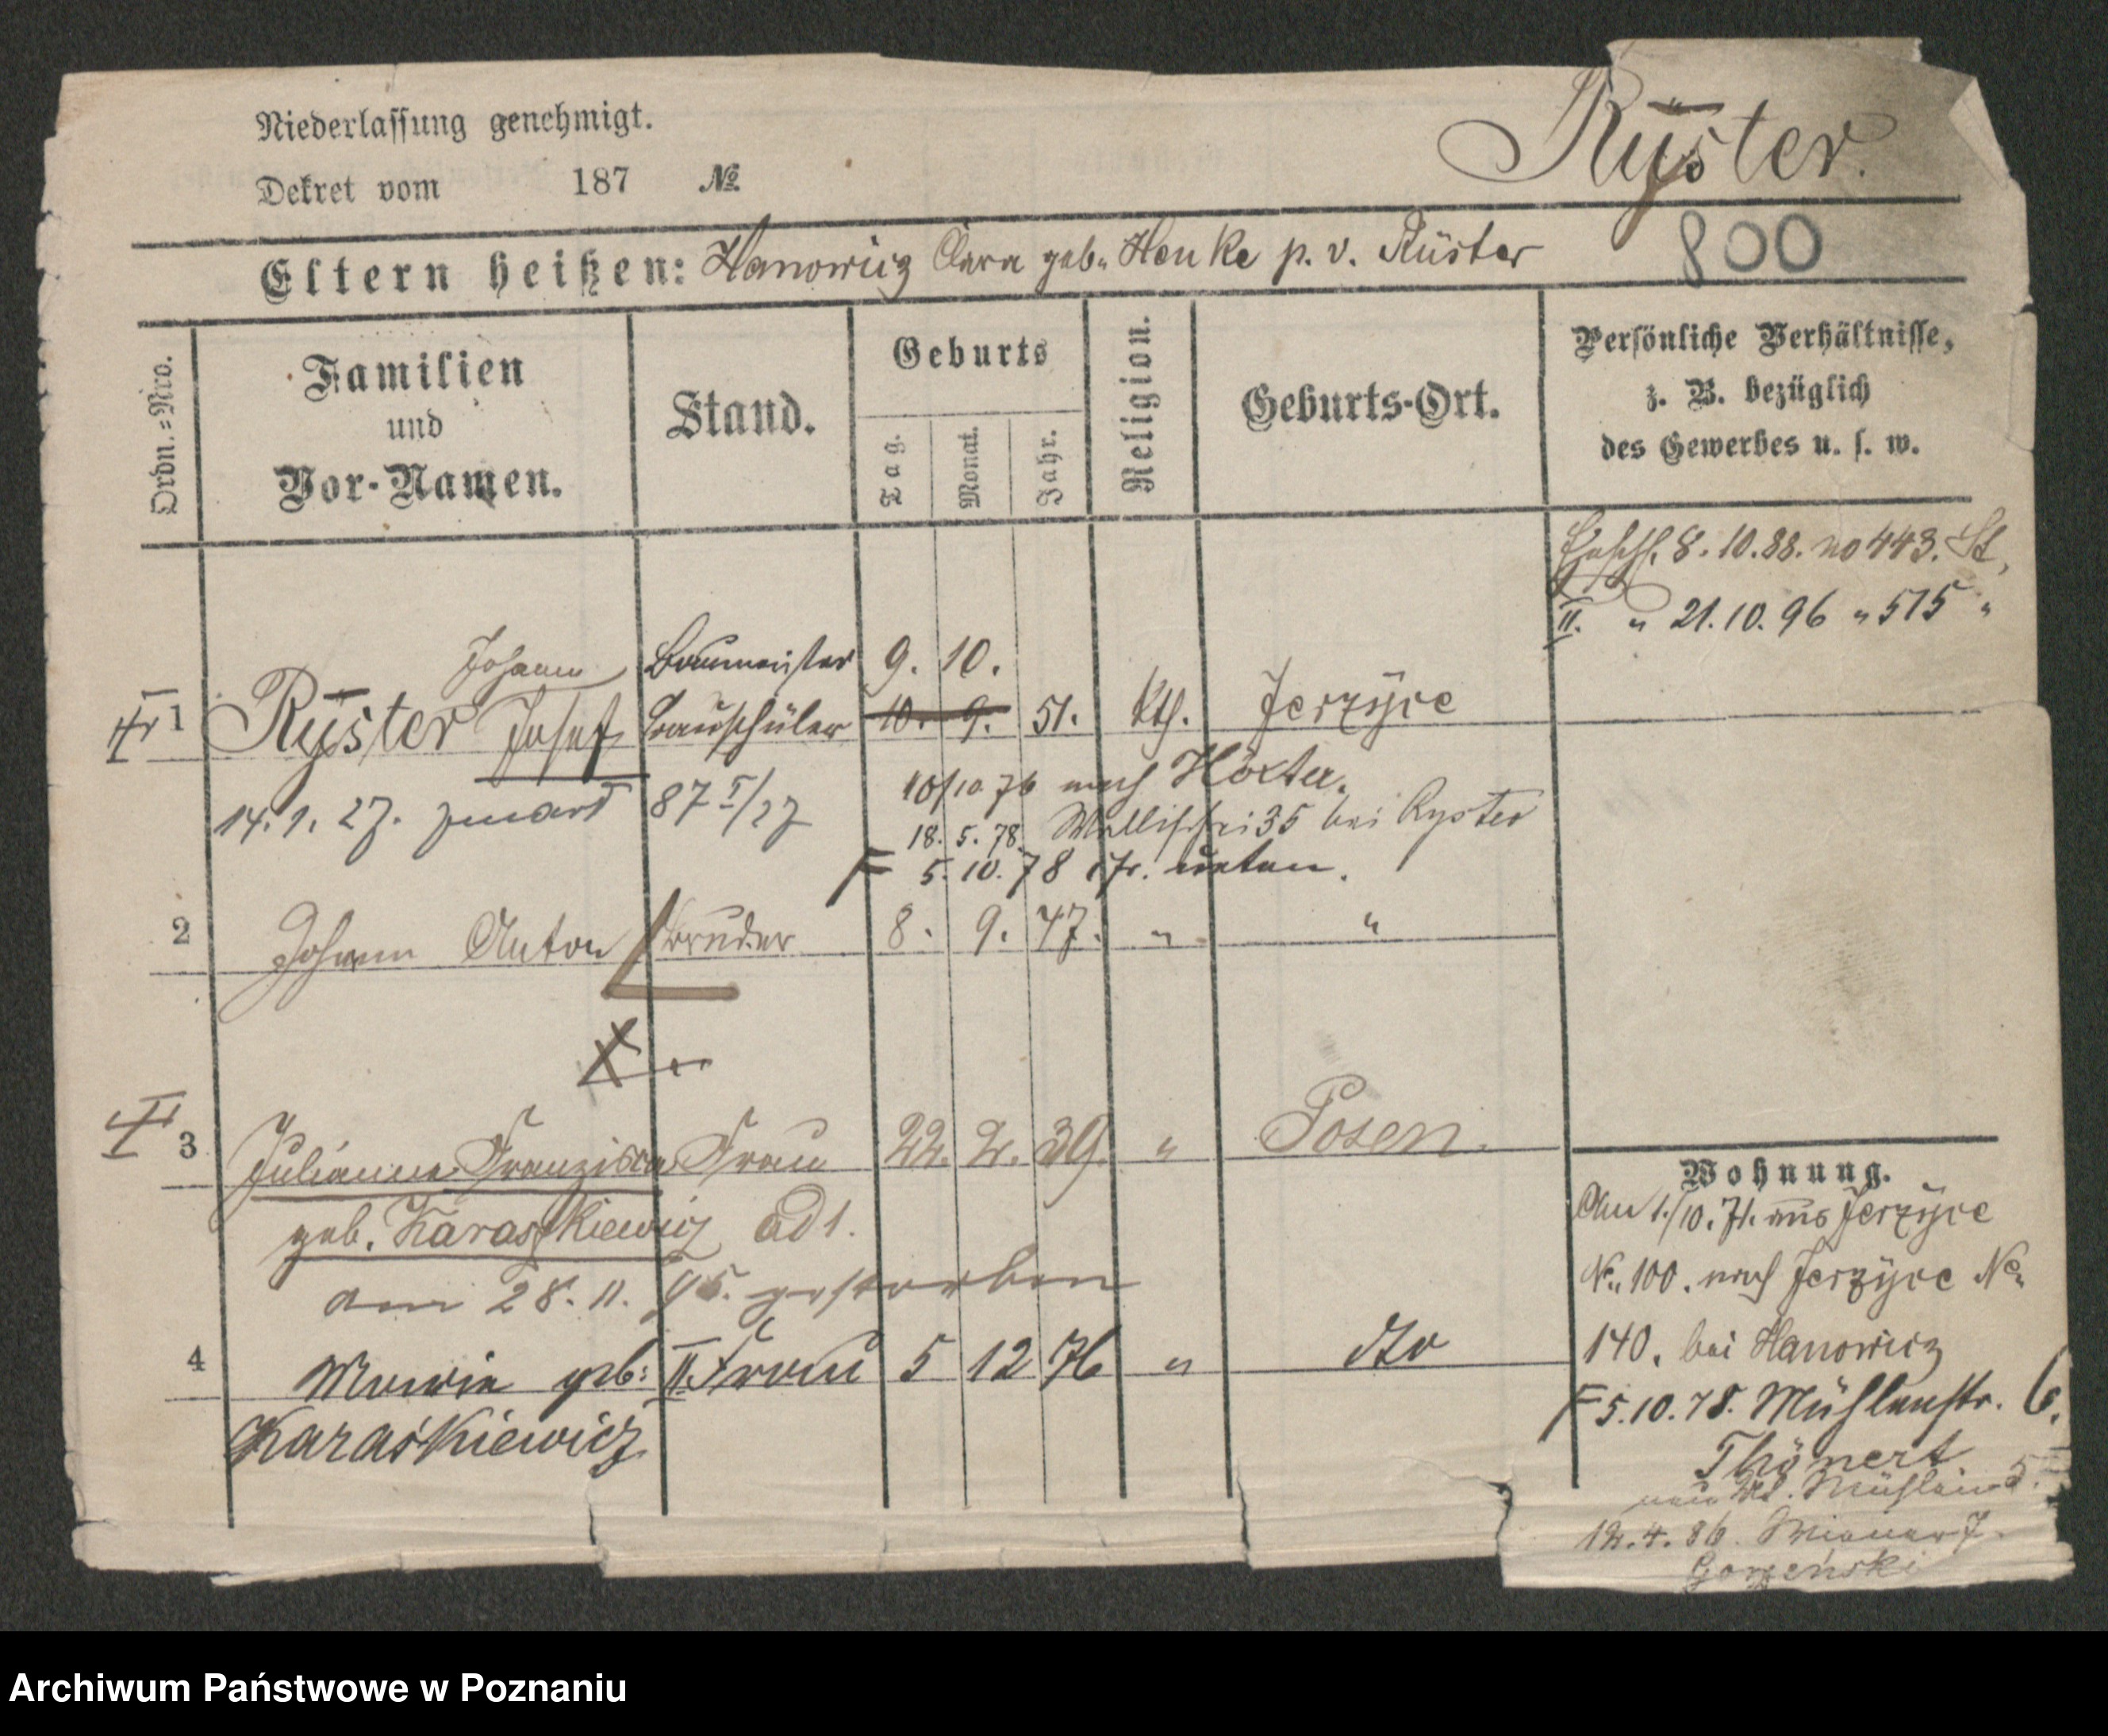 Niederlassung genehmigt.
Dekret vom 187 №
Ryster.
800
Eltern heißen: Hanowicz Clara geb. Henke p. v. Rüster
Ordn.=Nro.
Familien
und
Vor-Namen.
Stand.
Geburts
Tag.
Monat.
Jahr.
Religion.
Geburts-Ort.
Persönliche Verhältnisse,
z. B. bezüglich
des Gewerbes u. s. w.
8.10.88. no 443. St,
II. " 21.10.96 " 515 "
Johann Baumeister 9. 10.
1 Ryster Josef Bauschüler 10. 9. 51. kth. Jerzyce
14.1.27. 87 I/27
10/10 76 nach Höxter.
18. 5. 78. Wallischei 35 bei Ryster
F 5. 10. 78 unten.
2 Johann Anton Bruder 8. 9. 47. " "
3 Julianna Franziska Frau 22. 2. 39. " Posen.
geb. Karaskiewicz ad 1.
am 28. 11. 95. gestorben
4 Maria geb: II. Frau 5 12 76 " dto
Karaśkiewicz
Wohnung.
Am 1./10.71. aus Jerzyce
No. 100. nach Jerzyce No.
140. bei Hanowicz
F 5.10.78. Mühlenstr. 6.
Thönert
12.4.86.
Gorzeński
Archiwum Państwowe w Poznaniu